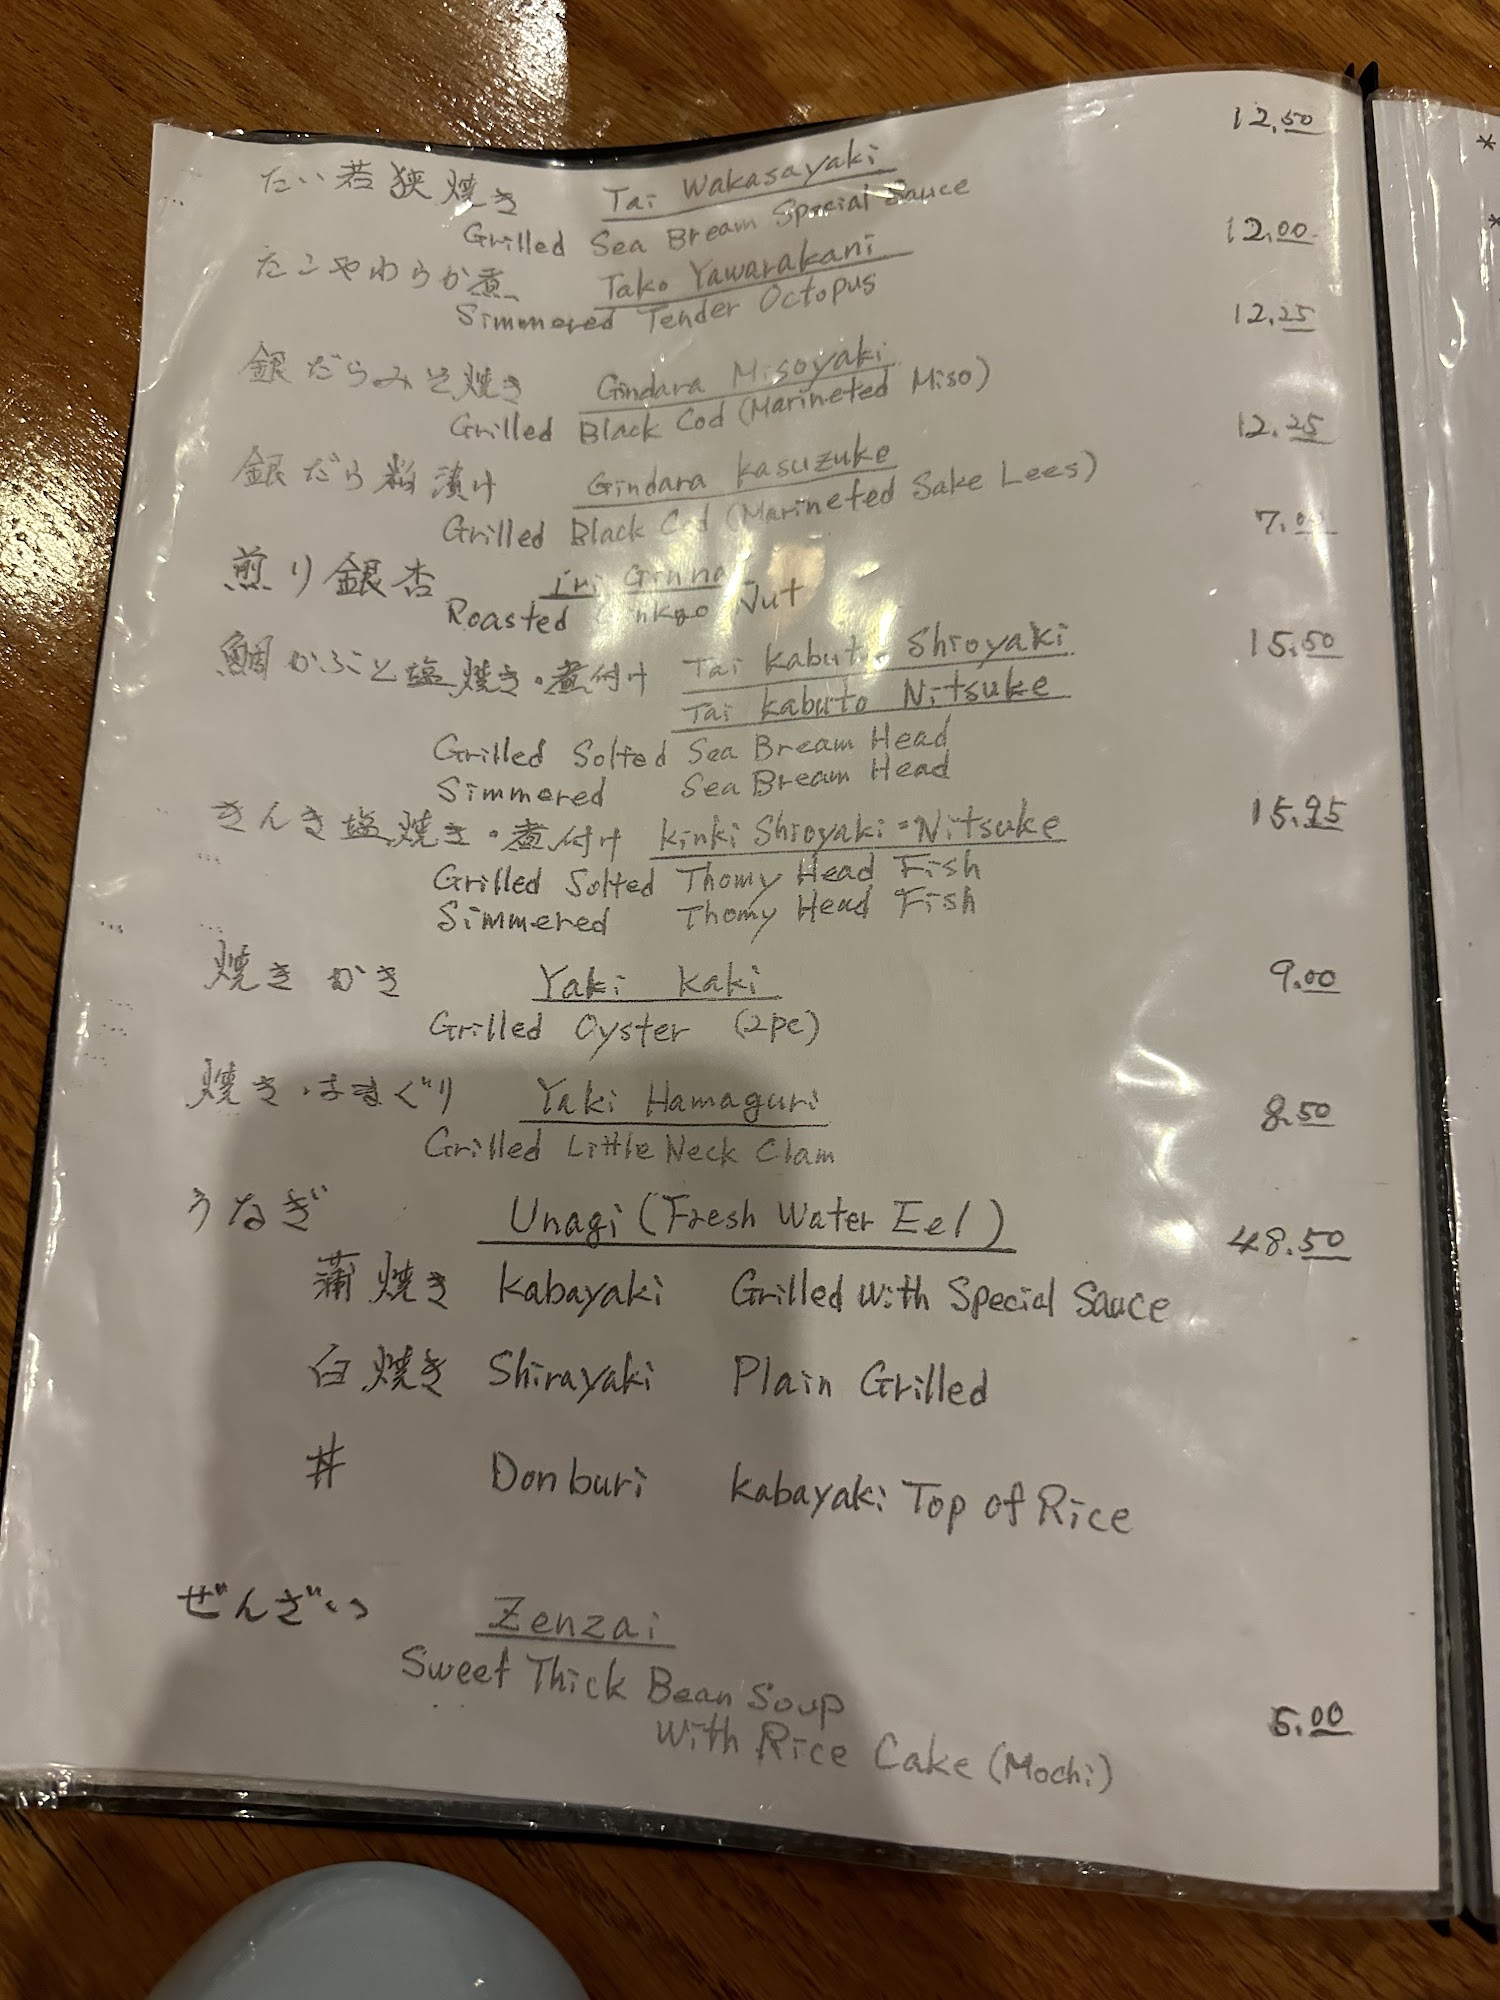 たい若狭焼き Tai Wakasayaki 12.50
Grilled Sea Bream Special Sauce
たこやわらか煮 Tako Yawarakani 12.00
Simmered Tender Octopus
銀だらみそ焼き Gindara Misoyaki 12.25
Grilled Black Cod (Marineted Miso)
銀だら粕漬け Gindara Kasuzuke 12.25
Grilled Black Cod (Marineted Sake Lees)
煎り銀杏 iri 7.00
Roasted Nut
鯛かぶと塩焼き・煮付け Tai Shioyaki 15.50
Tai Kabuto Nitsuke
Grilled Solted Sea Bream Head
Simmered Sea Bream Head
きんき塩焼き・煮付け Kinki Shioyaki・Nitsuke 15.95
Grilled Solted Thomy Head Fish
Simmered Thomy Head Fish
焼きかき Yaki Kaki 9.00
Grilled Oyster (2pc)
焼き・はまぐり Yaki Hamaguri 8.50
Grilled Little Neck Clam
うなぎ Unagi (Fresh Water Eel) 48.50
蒲焼き Kabayaki Grilled With Special Sauce
白焼き Shirayaki Plain Grilled
丼 Donburi Kabayaki Top of Rice
ぜんざい Zenzai
Sweet Thick Bean Soup
With Rice Cake (Mochi) 5.00
*
*